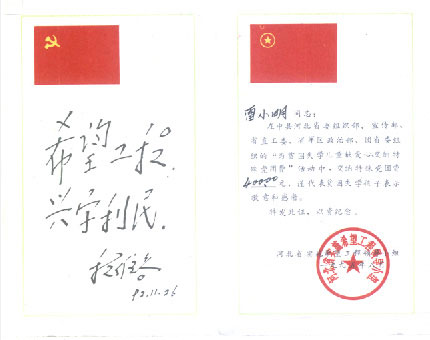 希望工程
兴学利民
92.11.26
小明 同志:
在中共河北省委组织部、宣传部、
省直工委、省军区政治部、团省委组
织的“为贫困失学儿童献爱心交纳特
殊党团费”活动中,交纳特殊党团费
元,谨代表贫困失学孩子表示
敬意和感谢。
特发此证,以资纪念。
河北省实施希望工程